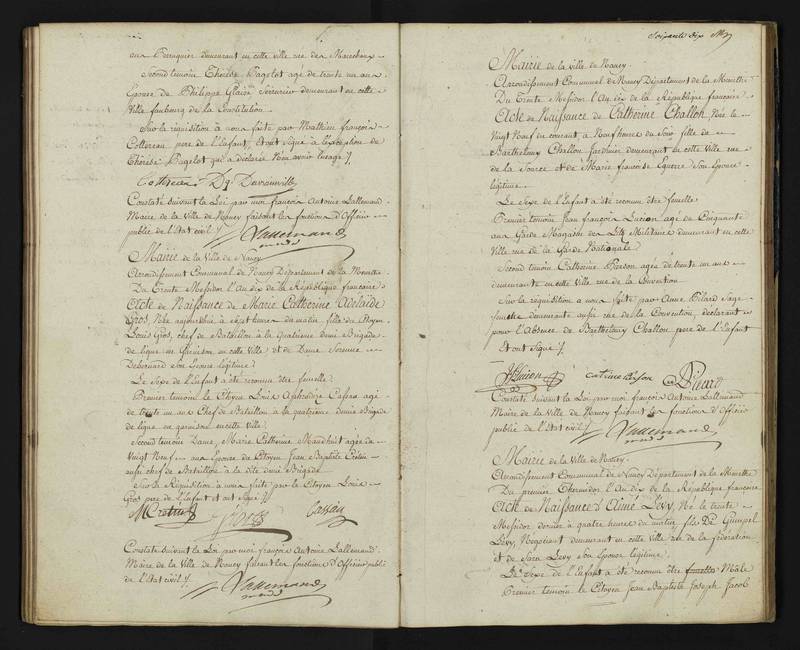 ans Perruquier demeurant en cette ville rue des Marechaux
Second temoin Thérèse Bagelot agé de trente un ans
Epouse de Philippe Glaise Serrurier demeurant en cette
Ville faubourg de la Constitution.
Sur la réquisition à nous faite par Mathieu françois
Cottereau pere de l'Enfant, et ont Signé à l'exception de
Thérèse Bagelot qui a déclaré n'en avoir l'usage ./.
Cottereau
Constaté Suivant la Loi par moi françois Antoine Lallemand
Maire de la Ville de Nancy faisant les fonctions d'Officier
public de l'Etat civil ./.
Lallemand
Mairie de la Ville de Nancy
Arrondissement Communal de Nancy Département de la Meurthe
Du Trente Messidor l'An dix de la République française
Acte de Naissance de Marie Catherine Adelaide
Gros, Née aujourd'hui à sept heures du matin, fille du Citoyen
Louis Gros, chef de Bataillon à la quatrieme demi Brigade
de ligne en Garnison en cette Ville et de Dame
son Epouse légitime.
Le Sexe de l'Enfant à été reconnu être femelle.
Premier temoin le Citoyen Louis Aphrodize Cassan agé
de trente un ans Chef de Bataillon à la quatrieme demi Brigade
de ligne en garnison en cette Ville
Second temoin Dame Marie Catherine Mauduit agée de
Vingt Neuf ans Epouse du Citoyen Jean Baptiste Crétin
aussi chef de Bataillon à la dite demi Brigade
Sur la Réquisition à nous faite par le Citoyen Louis
Gros pere de l'Enfant et ont Signé ./.
Cassan
Constaté Suivant la Loi par moi françois Antoine Lallemand
Maire de la Ville de Nancy faisant les fonctions d'Officier public
de l'Etat civil ./.
Lallemand
Soixante dix
Mairie de la Ville de Nancy.
Arrondissement Communal de Nancy Département de la Meurthe
Du Trente Messidor l'An dix de la République française
Acte de Naissance de Catherine Challon, Née le
Vingt Neuf du courant à Neuf heures du Soir fille de
Barthelemy Challon Jardinier demeurant en cette Ville rue
de la Source et de Marie françoise Equerre Son Epouse
légitime.
Le Sexe de l'Enfant à été reconnu être femelle
Premier temoin Jean françois Lucion agé de Cinquante
ans Garde Magasin des Lits Militaires demeurant en cette
Ville rue de la Garde Nationale.
Second temoin Catherine Person agée de trente un ans
demeurante en cette Ville rue de la Convention
Sur la requisition a nous faite par Anne Pilard Sage
femme demeurante aussi rue de la Convention, declarant
pour l'Absence de Barthelemy Challon pere de l'Enfant
Et ont Signé ./.
Lucion
Constaté suivant la Loi par moi françois Antoine Lallemand
Maire de la Ville de Nancy faisant les fonctions d'Officier
public de l'Etat civil ./.
Lallemand
Mairie de la Ville de Nancy.
Arrondissement Communal de Nancy Département de la Meurthe
Du premier Thermidor l'An dix de la République française
Acte de Naissance d'Aimé Levy, Né le trente
Messidor dernier à quatre heures du matin, fils De Gumpel
Levy, Négociant demeurant en cette Ville rue de la fédération
et de Sara Levy Son Epouse légitime.
Le Sexe de l'Enfant a été reconnu être femelle Mâle
Premier temoin le Citoyen Jean Baptiste Joseph Jacob